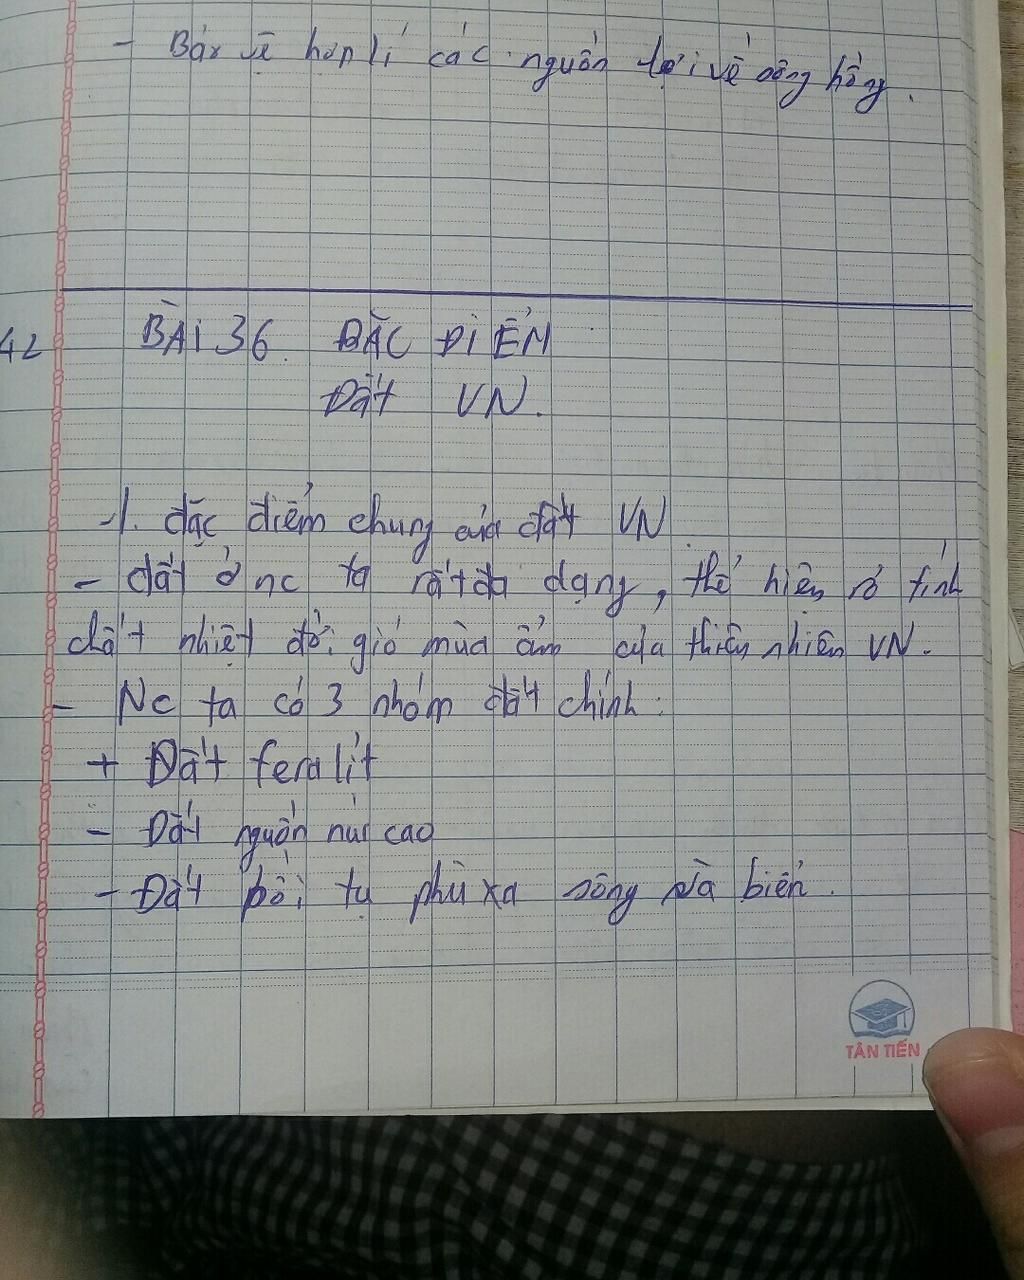 - Bảo vệ hợp lí các nguồn lợi về sông hồng.
42
BÀI 36. ĐẶC ĐIỂM
Đất VN.
1. đặc điểm chung của đất VN
- đất ở nc ta rất đa dạng, thể hiện rõ tính
chất nhiệt đới gió mùa ẩm của thiên nhiên VN.
- Nc ta có 3 nhóm đất chính:
+ Đất feralit
- Đất nguồn núi cao
- Đất bồi tụ phù xa sông và biển.
TÂN TIẾN